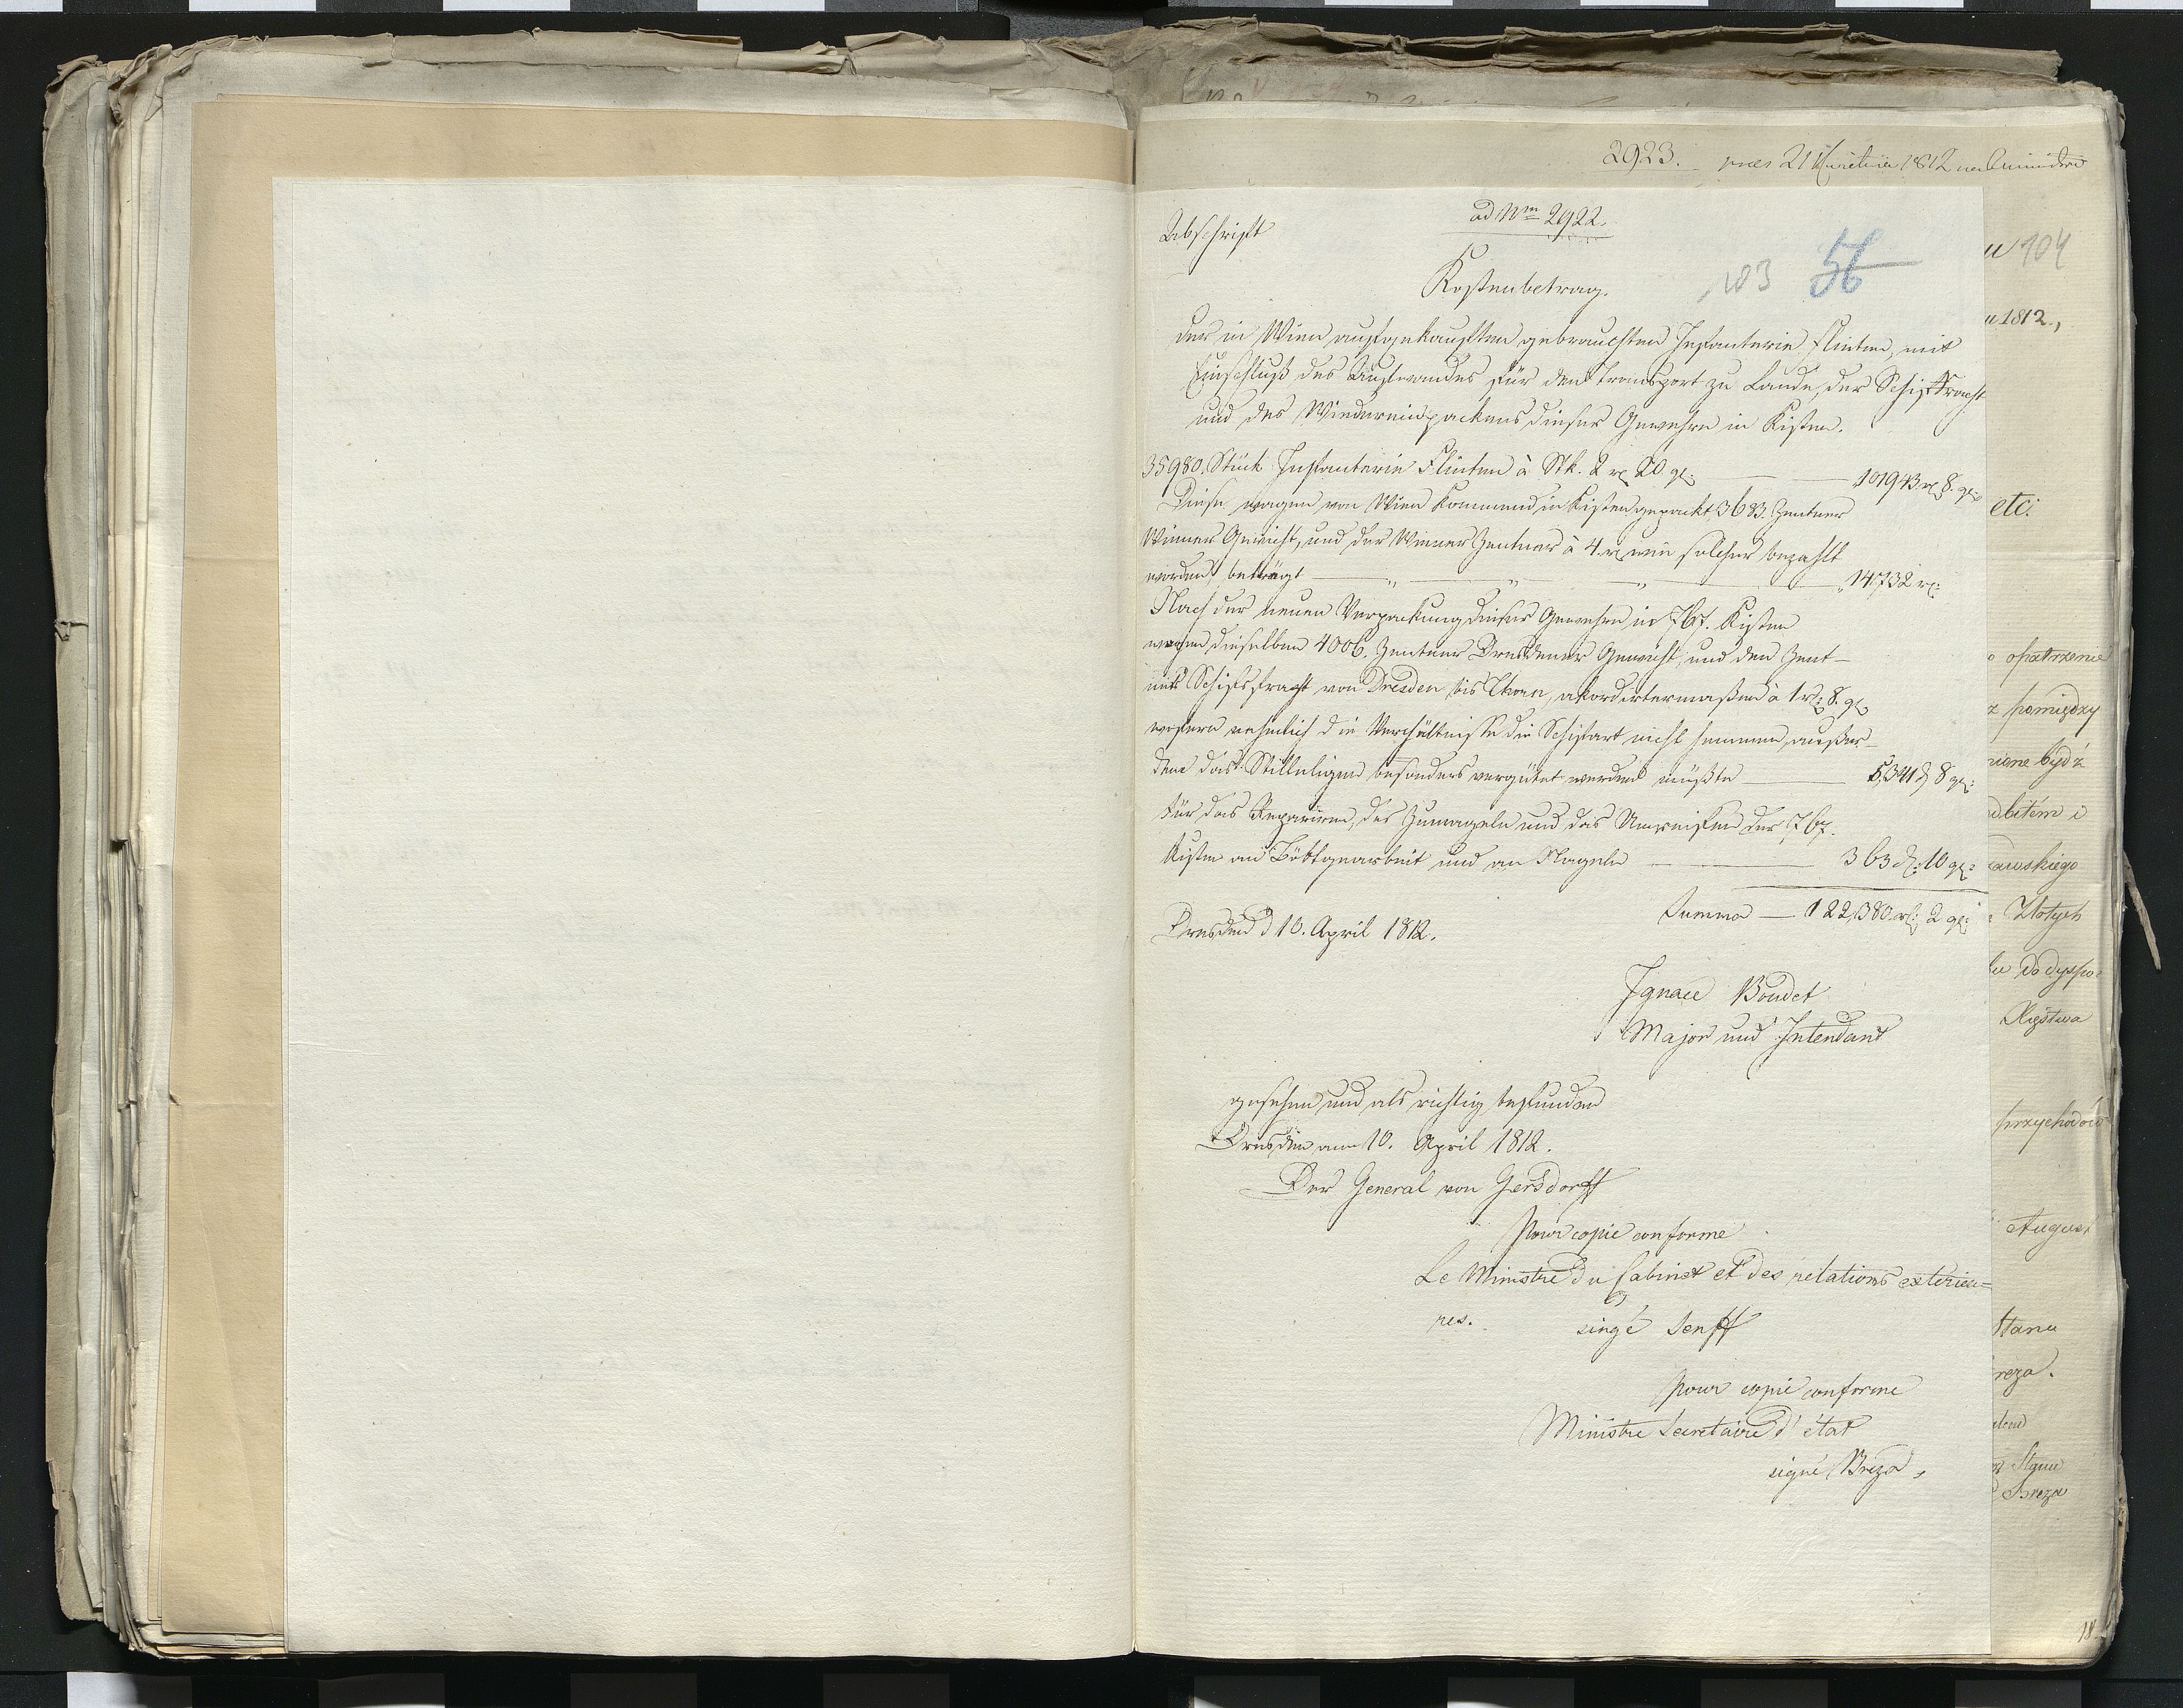 2923. praes 21 Kwietnia 1812
Abschrift
ad Nrm 2922.
103 56
Kostenbetrag.
der in Wien aufgekauften gebrauchten Infanterie Flinten, mit
Einschluß des Aufwandes für den Transport zu Lande, der Schiffracht
und des Wiedereinpackens dieser Gewehre in Kisten.
35980. Stück Infanterie Flinten à Stk. 2 rl 20 gl: — 101943 rl 8. gl:
Diese wogen von Wien kommend in Kisten gepackt 3683. Zentner
Wiener Gewicht, und der Wiener Zentner à 4. rl ein solcher bezahlt
worden, beträgt — „ — „ — „ — „ 14,732 rl:
Nach der neuen Verpackung dieser Gewehre in 767. Kisten
wogen dieselben 4006. Zentner Dresdener Gewicht, und den Zent-
ner Schifsfracht von Dresden bis Thorn, akordirtermaßen à 1 rl: 8. gl:
wofern nehmlich die Verhältnisse die Schifart nicht hemmen, außer-
dem das Stilleligen besonders vergütet werden müßte — 5,341 rl 8 gl:
Für das Repariren, des Zunageln und das Umreifen der 767.
Kisten an Böttgerarbeit und an Nageln — 363 rl: 10 gl:
Summa — 122,380. rl: 2 gl:
Dresden d 10. April 1812.
Ignace Boudet
Major und Intendant
gesehen und als richtig befunden
Dresden am 10. April 1812.
Der General von Gersdorff
pour copie conforme
Le Ministre du Cabinet et des relations exterieu=
res. singé Senff
pour copie conforme
Ministre Secretaire d'état
signé Breza,
u 104
u 1812.,
etc:
opatrzenie
z pomiędzy
bydź
Złotych
do dyspo=
Xięstwa
przychodów
August
Stanu
reza.
Breza
18